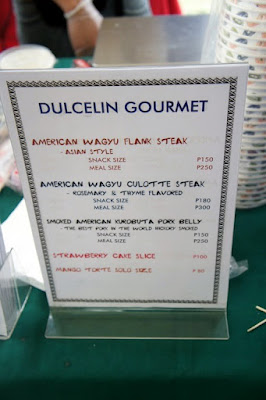 DULCELIN GOURMET
AMERICAN WAGYU FLANK STEAK
- ASIAN STYLE
SNACK SIZE P150
MEAL SIZE P250
AMERICAN WAGYU CULOTTE STEAK
- ROSEMARY & THYME FLAVORED
SNACK SIZE P180
MEAL SIZE P300
SMOKED AMERICAN KUROBUTA PORK BELLY
- THE BEST PORK IN THE WORLD HICKORY SMOKED
SNACK SIZE P150
MEAL SIZE P250
STRAWBERRY CAKE SLICE P100
MANGO TORTE SOLO SIZE P80